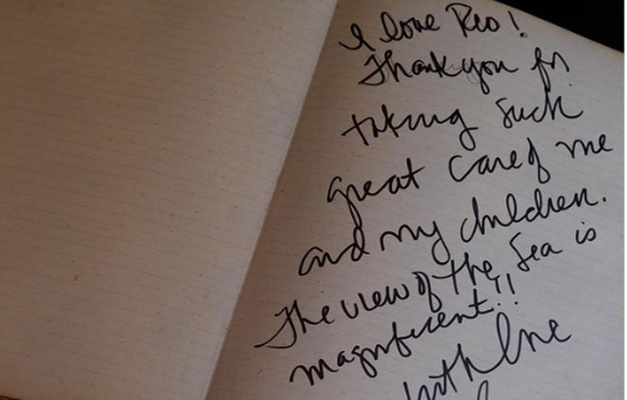 I love Rio!
Thank you for
taking such
great care of me
and my children.
The view of the Sea is
magnificent!!
With love